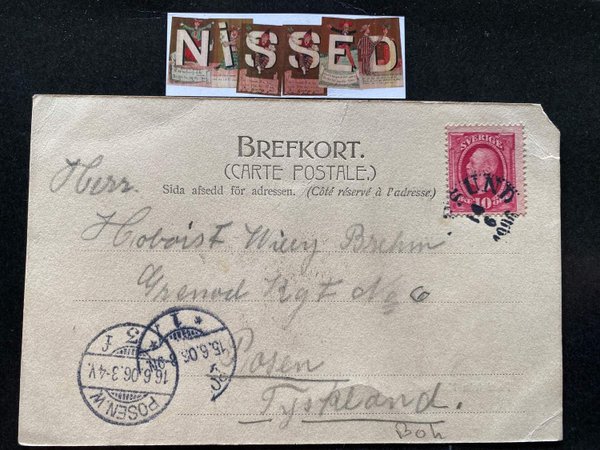 NiSSED
BREFKORT.
(CARTE POSTALE.)
Sida afsedd för adressen. (Côté réservé à l'adresse.)
SVERIGE
10 ÖRE
UND
Herr.
Hoboist Willy Brehm
Grenad Rgt No 6
Posen
Tyskland.
Boh
POSEN.W
16.6.06.3-4V.
3 f
* 1 *
15.6.06